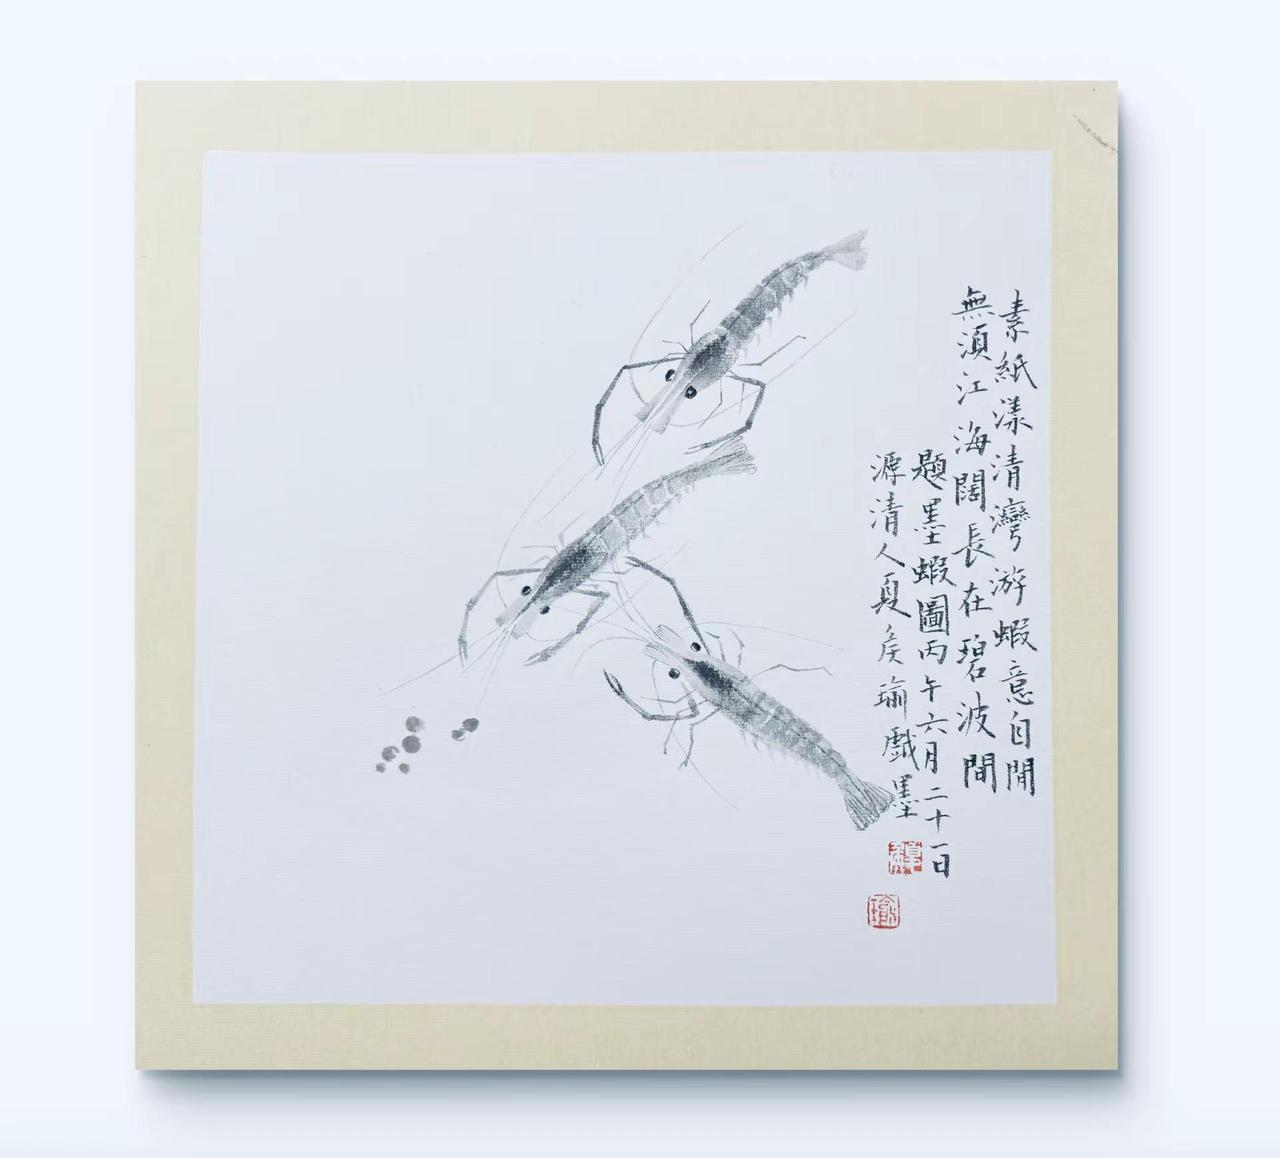 素紙漾清灣游蝦意自閒
無須江海闊長在碧波間
題墨蝦圖丙午六月二十一日
源清人夏侯瑜戲墨